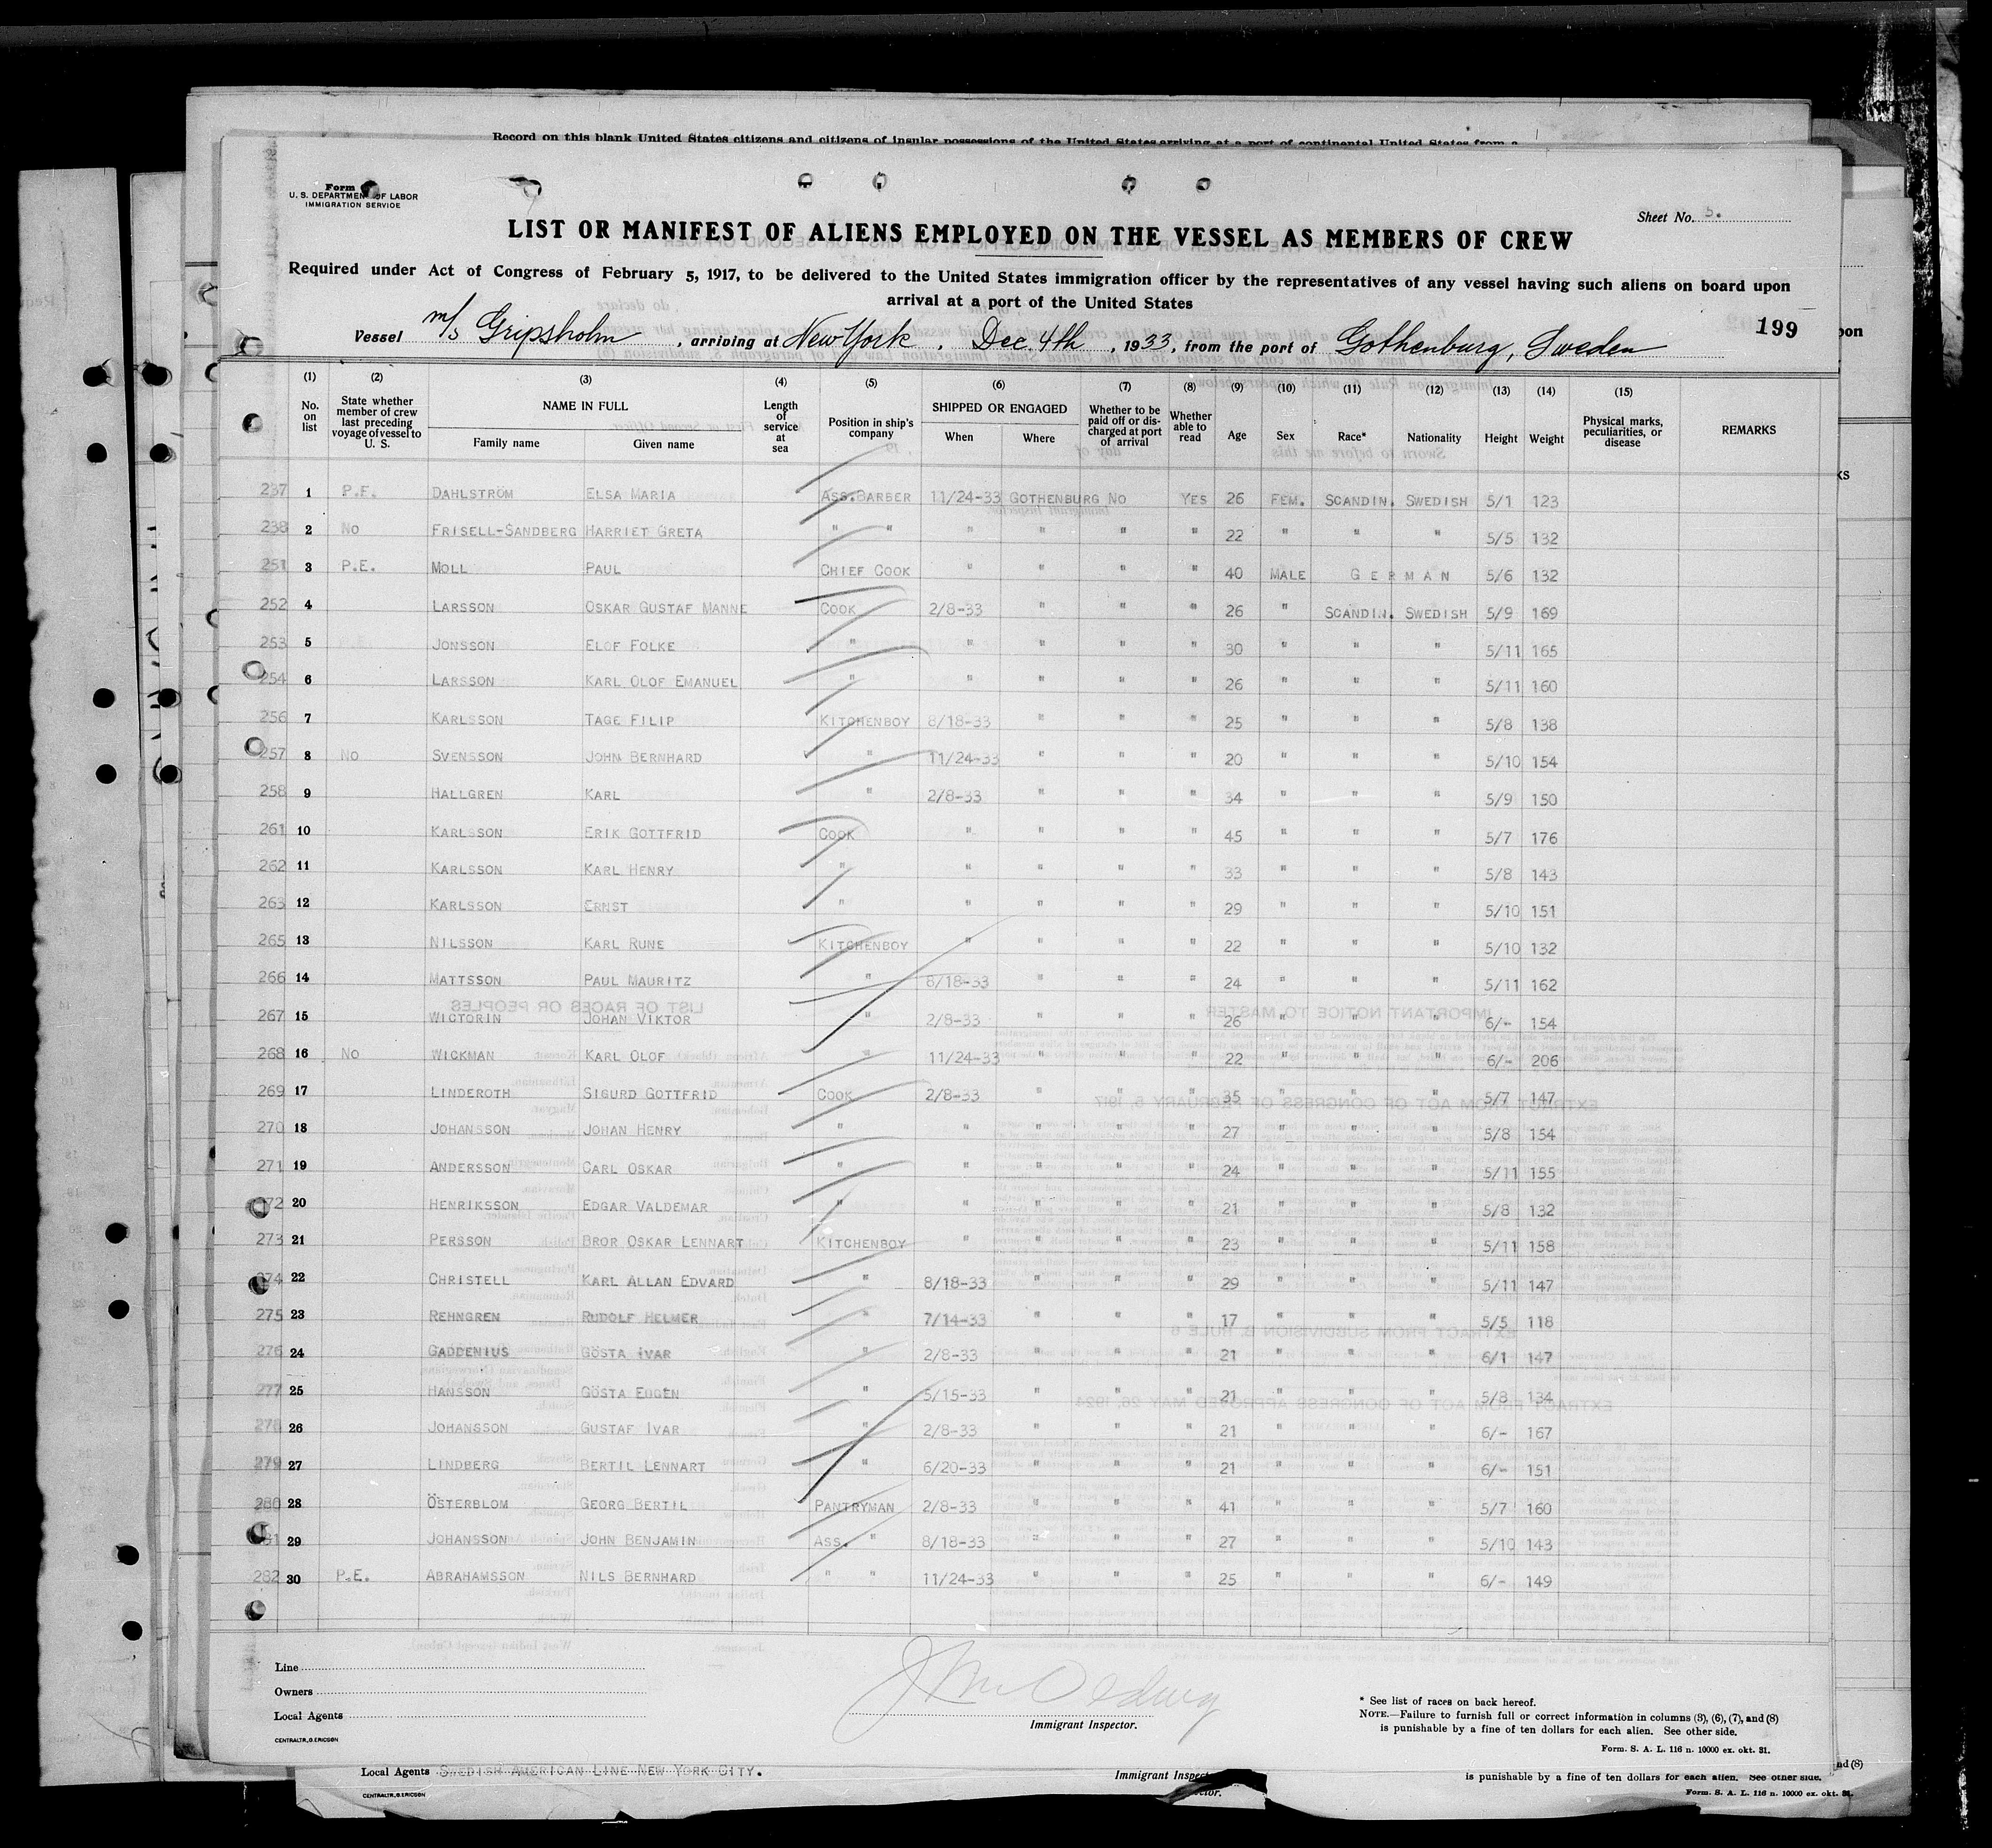 Record on this blank United States citizens and citizens of insular possessions of the United States arriving at a port of continental United States from a
Form
U. S. DEPARTMENT OF LABOR
IMMIGRATION SERVICE
Sheet No. 5.
LIST OR MANIFEST OF ALIENS EMPLOYED ON THE VESSEL AS MEMBERS OF CREW
Required under Act of Congress of February 5, 1917, to be delivered to the United States immigration officer by the representatives of any vessel having such aliens on board upon
arrival at a port of the United States
199
Vessel m/s Gripsholm, arriving at New York, Dec. 4th, 1933, from the port of Gothenburg, Sweden
(1) (2) (3) (4) (5) (6) (7) (8) (9) (10) (11) (12) (13) (14) (15)
No. on list | State whether member of crew last preceding voyage of vessel to U. S. | NAME IN FULL | Length of service at sea | Position in ship's company | SHIPPED OR ENGAGED | Whether to be paid off or discharged at port of arrival | Whether able to read | Age | Sex | Race* | Nationality | Height | Weight | Physical marks, peculiarities, or disease | REMARKS
Family name | Given name | When | Where
237 1 P.E. DAHLSTRÖM ELSA MARIA ASS.BARBER 11/24-33 GOTHENBURG NO YES 26 FEM. SCANDIN. SWEDISH 5/1 123
238 2 NO FRISELL-SANDBERG HARRIET GRETA " " " " " " 22 " " " 5/5 132
251 3 P.E. MOLL PAUL CHIEF COOK " " " " 40 MALE GERMAN 5/6 132
252 4 LARSSON OSKAR GUSTAF MANNE COOK 2/8-33 " " " 26 " SCANDIN. SWEDISH 5/9 169
253 5 JONSSON ELOF FOLKE " " " " " 30 " " " 5/11 165
254 6 LARSSON KARL OLOF EMANUEL " " " " " 26 " " " 5/11 160
256 7 KARLSSON TAGE FILIP KITCHENBOY 8/18-33 " " " 25 " " " 5/8 138
257 8 NO SVENSSON JOHN BERNHARD " 11/24-33 " " " 20 " " " 5/10 154
258 9 HALLGREN KARL " 2/8-33 " " " 34 " " " 5/9 150
261 10 KARLSSON ERIK GOTTFRID COOK " " " " 45 " " " 5/7 176
262 11 KARLSSON KARL HENRY " " " " " 33 " " " 5/8 143
263 12 KARLSSON ERNST " " " " " 29 " " " 5/10 151
265 13 NILSSON KARL RUNE KITCHENBOY " " " " 22 " " " 5/10 132
266 14 MATTSSON PAUL MAURITZ " 8/18-33 " " " 24 " " " 5/11 162
267 15 WICTORIN JOHAN VIKTOR " 2/8-33 " " " 26 " " " 6/- 154
268 16 NO WICKMAN KARL OLOF " 11/24-33 " " " 22 " " " 6/- 206
269 17 LINDEROTH SIGURD GOTTFRID COOK 2/8-33 " " " 35 " " " 5/7 147
270 18 JOHANSSON JOHAN HENRY " " " " " 27 " " " 5/8 154
271 19 ANDERSSON CARL OSKAR " " " " " 24 " " " 5/11 155
272 20 HENRIKSSON EDGAR VALDEMAR " " " " " 21 " " " 5/8 132
273 21 PERSSON BROR OSKAR LENNART KITCHENBOY " " " " 23 " " " 5/11 158
274 22 CHRISTELL KARL ALLAN EDVARD " 8/18-33 " " " 29 " " " 5/11 147
275 23 REHNGREN RUDOLF HELMER " 7/14-33 " " " 17 " " " 5/5 118
276 24 GADDENIUS GÖSTA IVAR " 2/8-33 " " " 21 " " " 6/1 147
277 25 HANSSON GÖSTA EUGEN " 5/15-33 " " " 21 " " " 5/8 134
278 26 JOHANSSON GUSTAF IVAR " 2/8-33 " " " 21 " " " 6/- 167
279 27 LINDBERG BERTIL LENNART " 6/20-33 " " " 21 " " " 6/- 151
280 28 ÖSTERBLOM GEORG BERTIL PANTRYMAN 2/8-33 " " " 41 " " " 5/7 160
281 29 JOHANSSON JOHN BENJAMIN ASS. " 8/18-33 " " " 27 " " " 5/10 143
282 30 P.E. ABRAHAMSSON NILS BERNHARD " " 11/24-33 " " " 25 " " " 6/- 149
Line
Owners
Local Agents
CENTRALTR., G. ERICSON
Immigrant Inspector.
* See list of races on back hereof.
NOTE.—Failure to furnish full or correct information in columns (3), (6), (7), and (8)
is punishable by a fine of ten dollars for each alien. See other side.
Form. S. A. L. 116 n. 10000 ex. okt. 31.
Local Agents SWEDISH AMERICAN LINE NEW YORK CITY.
CENTRALTR., G. ERICSON
Immigrant Inspec
is punishable by a fine of ten dollars for each alien. See other side.
Form. S. A. L. 116 n. 10000 ex. okt. 31.